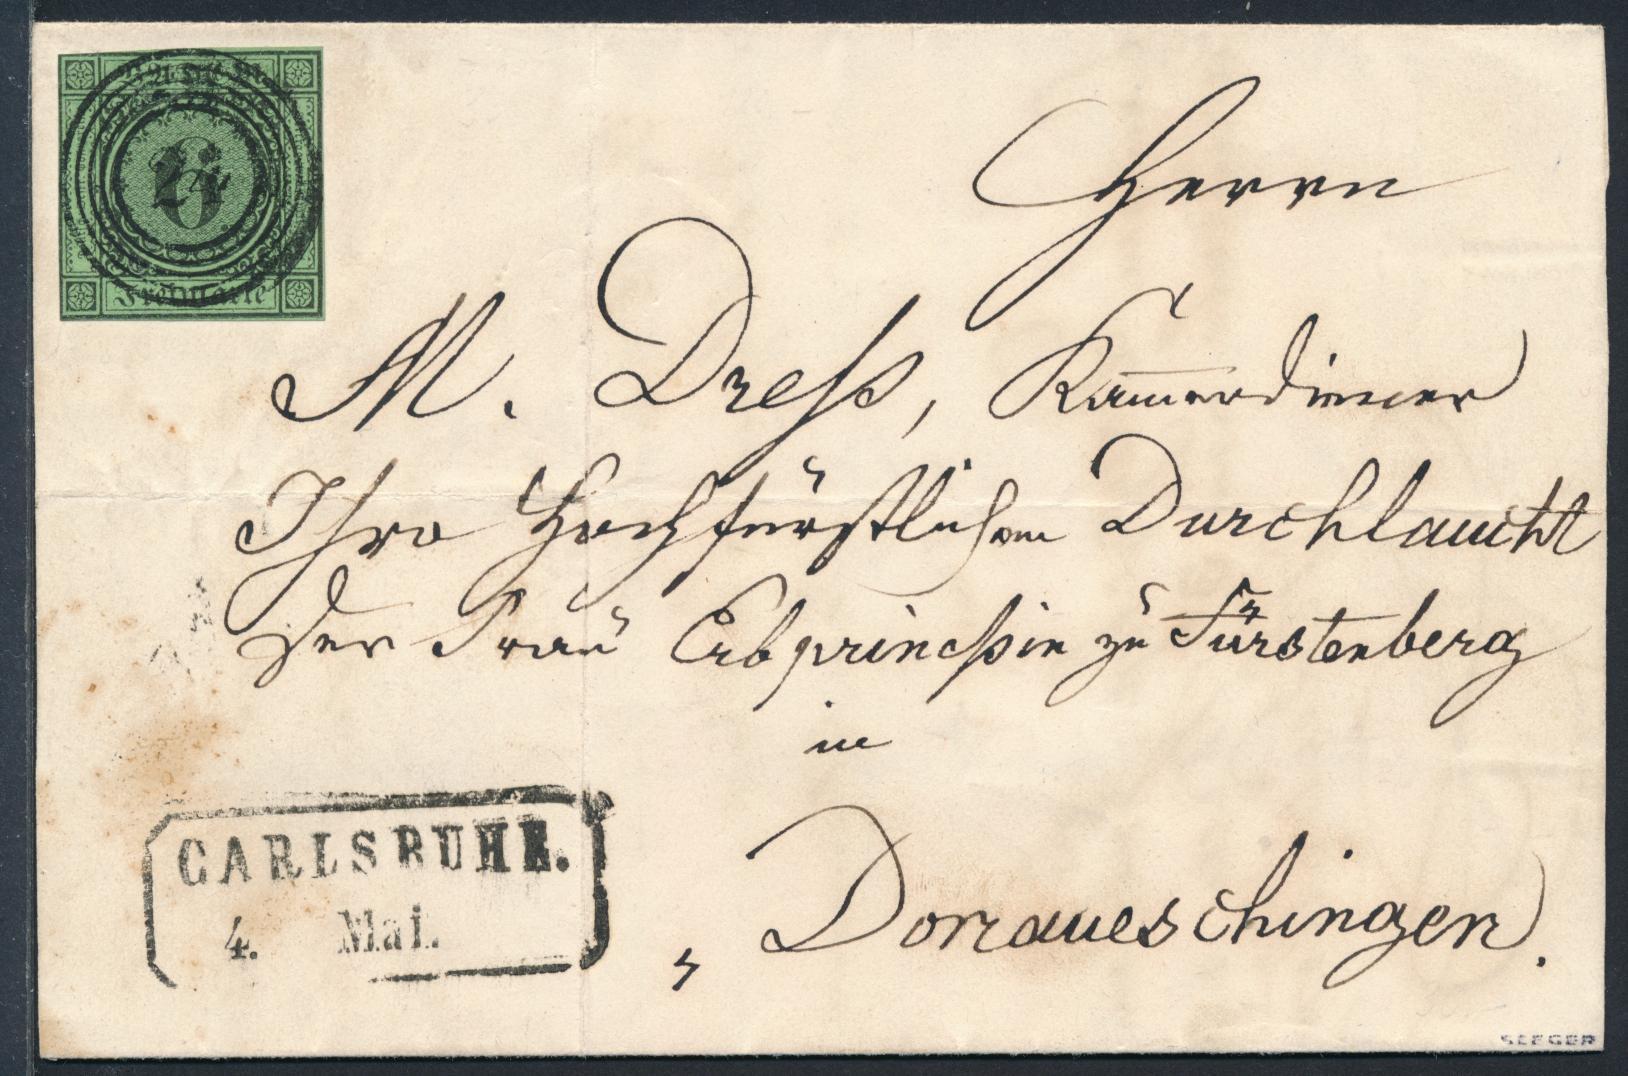 6
24
Freimarke
Herrn
M. Dreß, Kam̅erdiener
Ihro Hochfürstlichen Durchlaucht
der Frau Erbprinceßin zu Fürstenberg
in
Donaueschingen.
CARLSRUHE.
4. Mai.
SEEGER